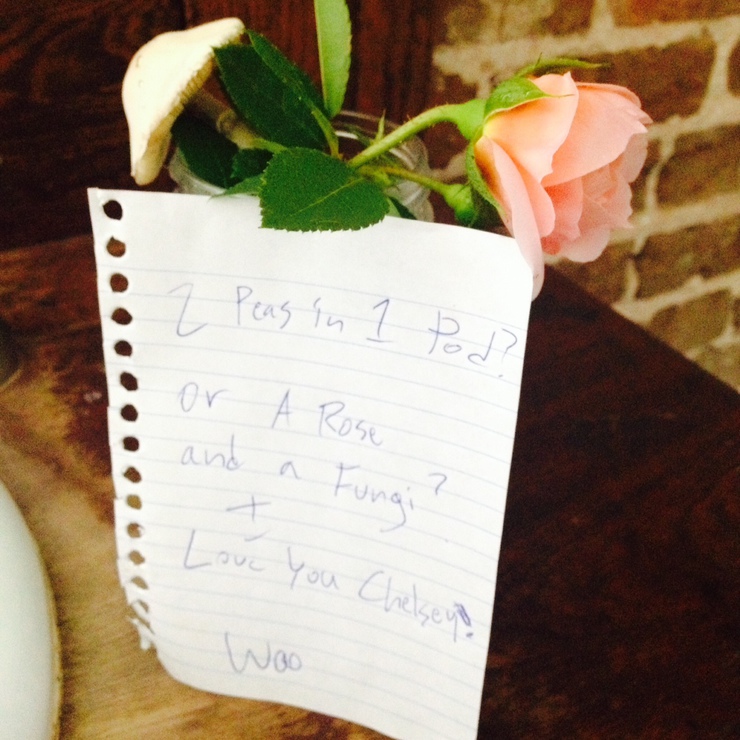 2 Peas in 1 Pod?
or A Rose
and a Fungi?
I
Love You Chelsey!
Woo